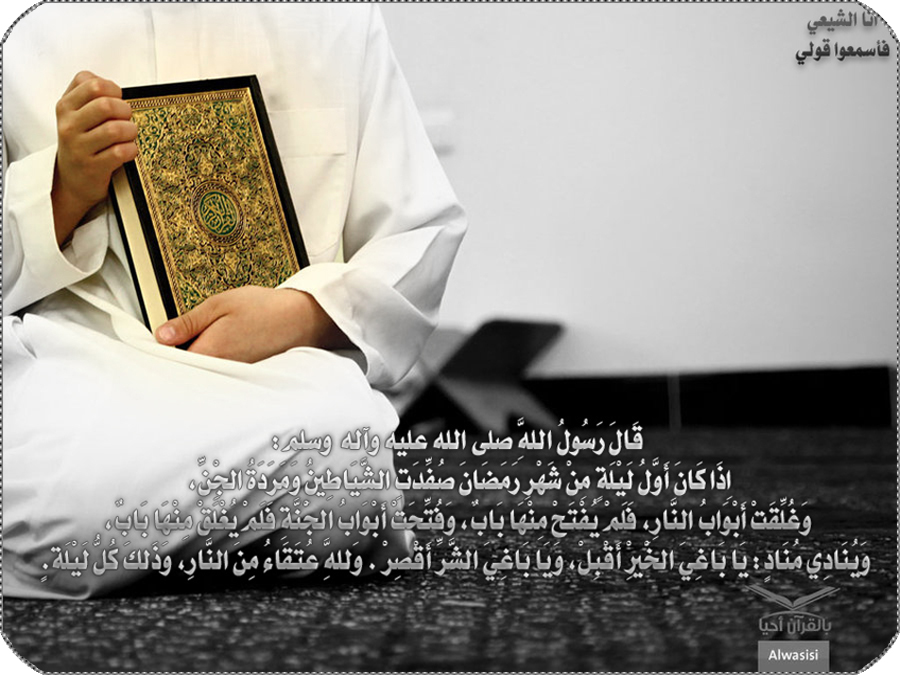 أنا الشيعي
فأسمعوا قولي
قَالَ رَسُولُ اللهِ صلى الله عليه وآله وسلم :
اذَا كَانَ أَوَّلُ لَيْلَة مِنْ شَهْرِ رَمَضَانَ صُفِّدَتْ الشَّيَاطِينُ وَمَرَدَةُ الجِْنِّ،
وَغُلِّقَتْ أَبْوَابُ النَّار، فَلَمْ يُفْتَحْ مِنْهَا بَابٌ، وَفُتِّحَتْ أَبْوَابُ الجَنَّة فَلَمْ يُغْلَقْ مِنْهَا بَابٌ،
وَيُنَادِي مُنَادٍ : يَا بَاغِيَ الخَيْرِ أَقْبِلْ، وَيَا بَاغِيَ الشَّرِّ أَقْصِرْ . وللهِ عُتَقَاءُ مِن النَّارِ، وَذَلكَ كُلُّ لَيْلَة .
بالقرآن أحيا
Alwasisi